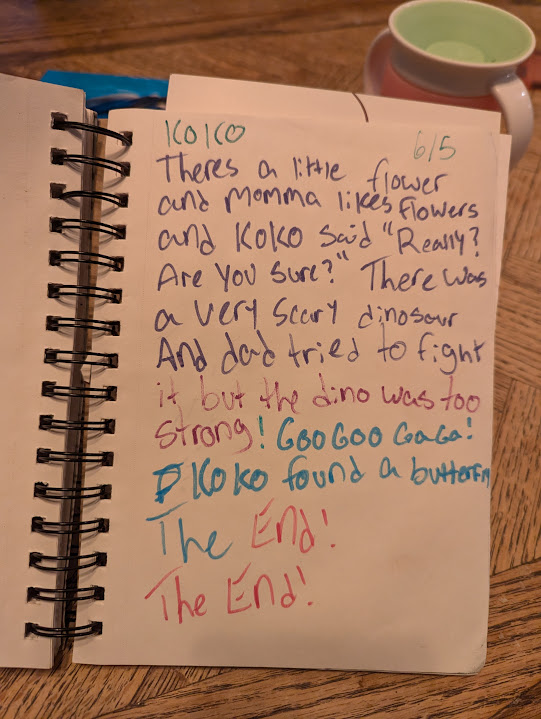 KOKO
6/5
Theres a little flower
and Momma likes Flowers
and KOKO said "Really?
Are you sure?" There was
a very scary dinosaur
And dad tried to fight
it but the dino was too
strong! Goo Goo GaGa!
KOKO found a butterfly
The End!
The End!